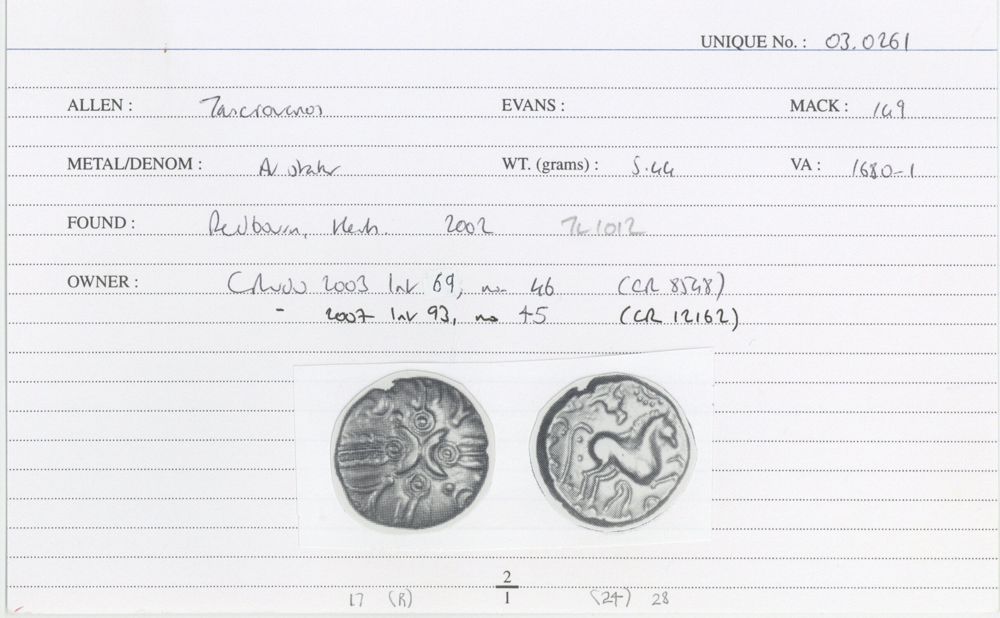 UNIQUE No. : 03.0261
ALLEN : Tasciovanos EVANS : MACK : 149
METAL/DENOM : AV stater WT. (grams) : 5.44 VA : 1680-1
FOUND : Redbourn, Herts. 2002 TL 1012
OWNER : 2003 list 69, no 46 (CR 8548)
- 2007 list 93, no 45 (CR 12162)
2
1
17 (R) (24) 28